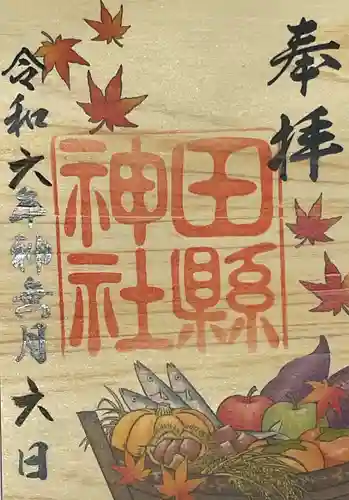 奉拝
田縣
神社
令和六年神無月六日